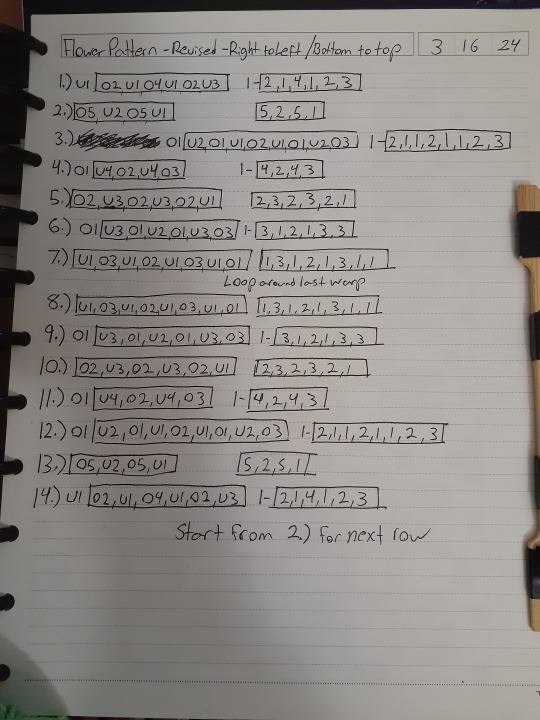 Flower Pattern - Revised - Right to Left / Bottom to top 3 16 24
1.) U1 O2 U1 O4 U1 O2 U3 1-2,1,4,1,2,3
2.) O5, U2, O5 U1 5,2,5,1
3.) O1 U2, O1, U1, O2, U1, O1, U2, O3 1-2,1,1,2,1,1,2,3
4.) O1 U4, O2, U4, O3 1-4,2,4,3
5.) O2, U3, O2, U3, O2, U1 2,3,2,3,2,1
6.) O1 U3, O1, U2, O1, U3, O3 1-3,1,2,1,3,3
7.) U1, O3, U1, O2, U1, O3, U1, O1 1,3,1,2,1,3,1,1
Loop around last warp
8.) U1, O3, U1, O2, U1, O3, U1, O1 1,3,1,2,1,3,1,1
9.) O1 U3, O1, U2, O1, U3, O3 1-3,1,2,1,3,3
10.) O2, U3, O2, U3, O2, U1 2,3,2,3,2,1
11.) O1 U4, O2, U4, O3 1-4,2,4,3
12.) O1 U2, O1, U1, O2, U1, O1, U2, O3 1-2,1,1,2,1,1,2,3
13.) O5, U2, O5, U1 5,2,5,1
14.) U1 O2, U1, O4, U1, O2, U3 1-2,1,4,1,2,3
Start from 2.) for next row